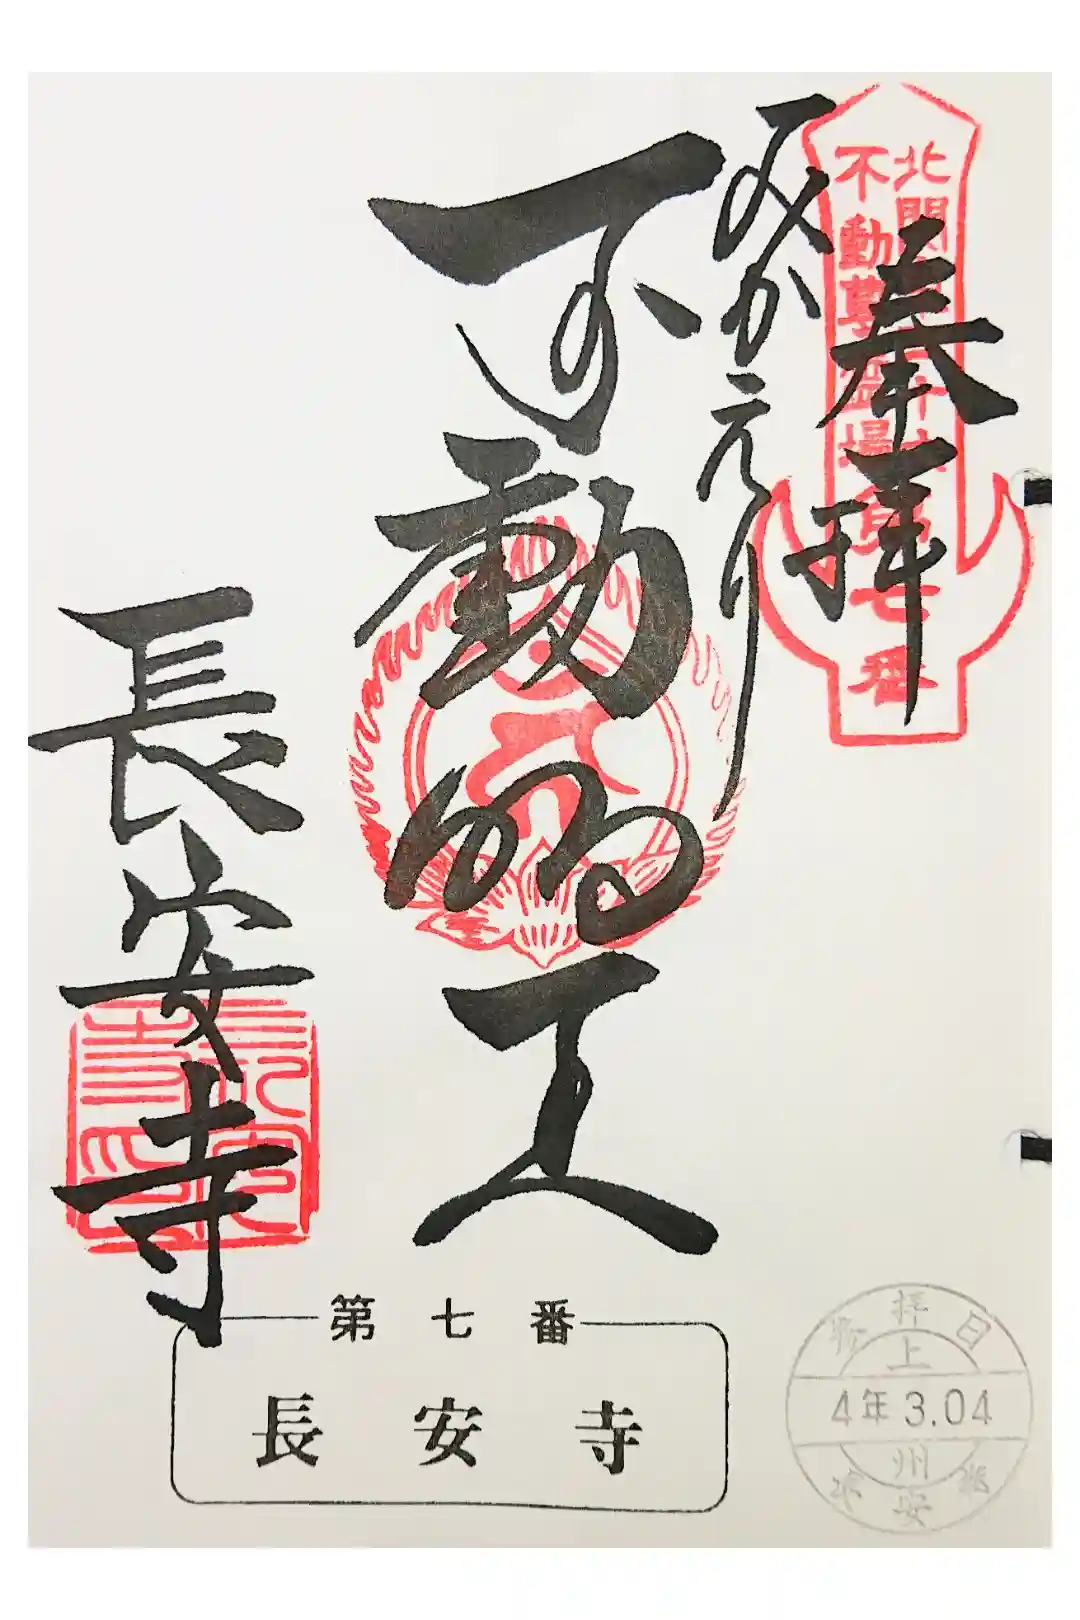 奉拝
北関東三十六
不動尊霊場第七番
みかえり
不動明王
長安寺
第七番
長安寺
参拝日
上州
4年3.04